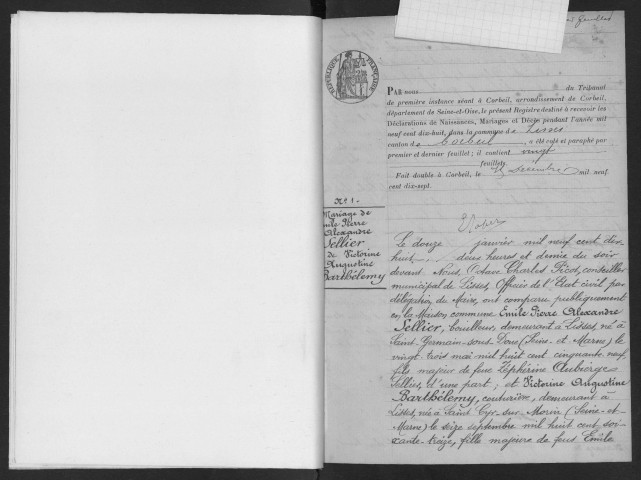 RÉPUBLIQUE FRANÇAISE
PAR nous du Tribunal
de première instance séant à Corbeil, arrondissement de Corbeil,
département de Seine-et-Oise, le présent Registre destiné à recevoir les
Déclarations de Naissances, Mariages et Décès pendant l'année mil
neuf cent dix-huit, dans la commune de Lisses
canton de Corbeil, a été coté et paraphé par
premier et dernier feuillet; il contient vingt
feuillets
Fait double à Corbeil, le décembre mil neuf
cent dix-sept.
N° 1.
Mariage de
Emile Pierre
Alexandre
Sellier
&
de Victorine
Augustine
Barthélemy
Le douze janvier mil neuf cent dix-
huit, deux heures et demie du soir
devant Nous, Octave Charles Picot, conseiller
municipal de Lisses, Officier de l'Etat civil par
délégation du Maire, ont comparu publiquement
en la Maison commune Emile Pierre Alexandre
Sellier, demeurant à Lisses, né à
Saint-Germain-sous-Doue (Seine-et-Marne) le
vingt-trois mai mil huit cent cinquante-neuf,
fils majeur de feue Zéphérine Auberge
Sellier, d'une part; et Victorine Augustine
Barthélemy, couturière, demeurant à
Lisses, née à Saint-Cyr-sur-Morin (Seine-et-
Marne) le seize septembre mil huit cent soi-
xante-treize, fille majeure de feus Emile